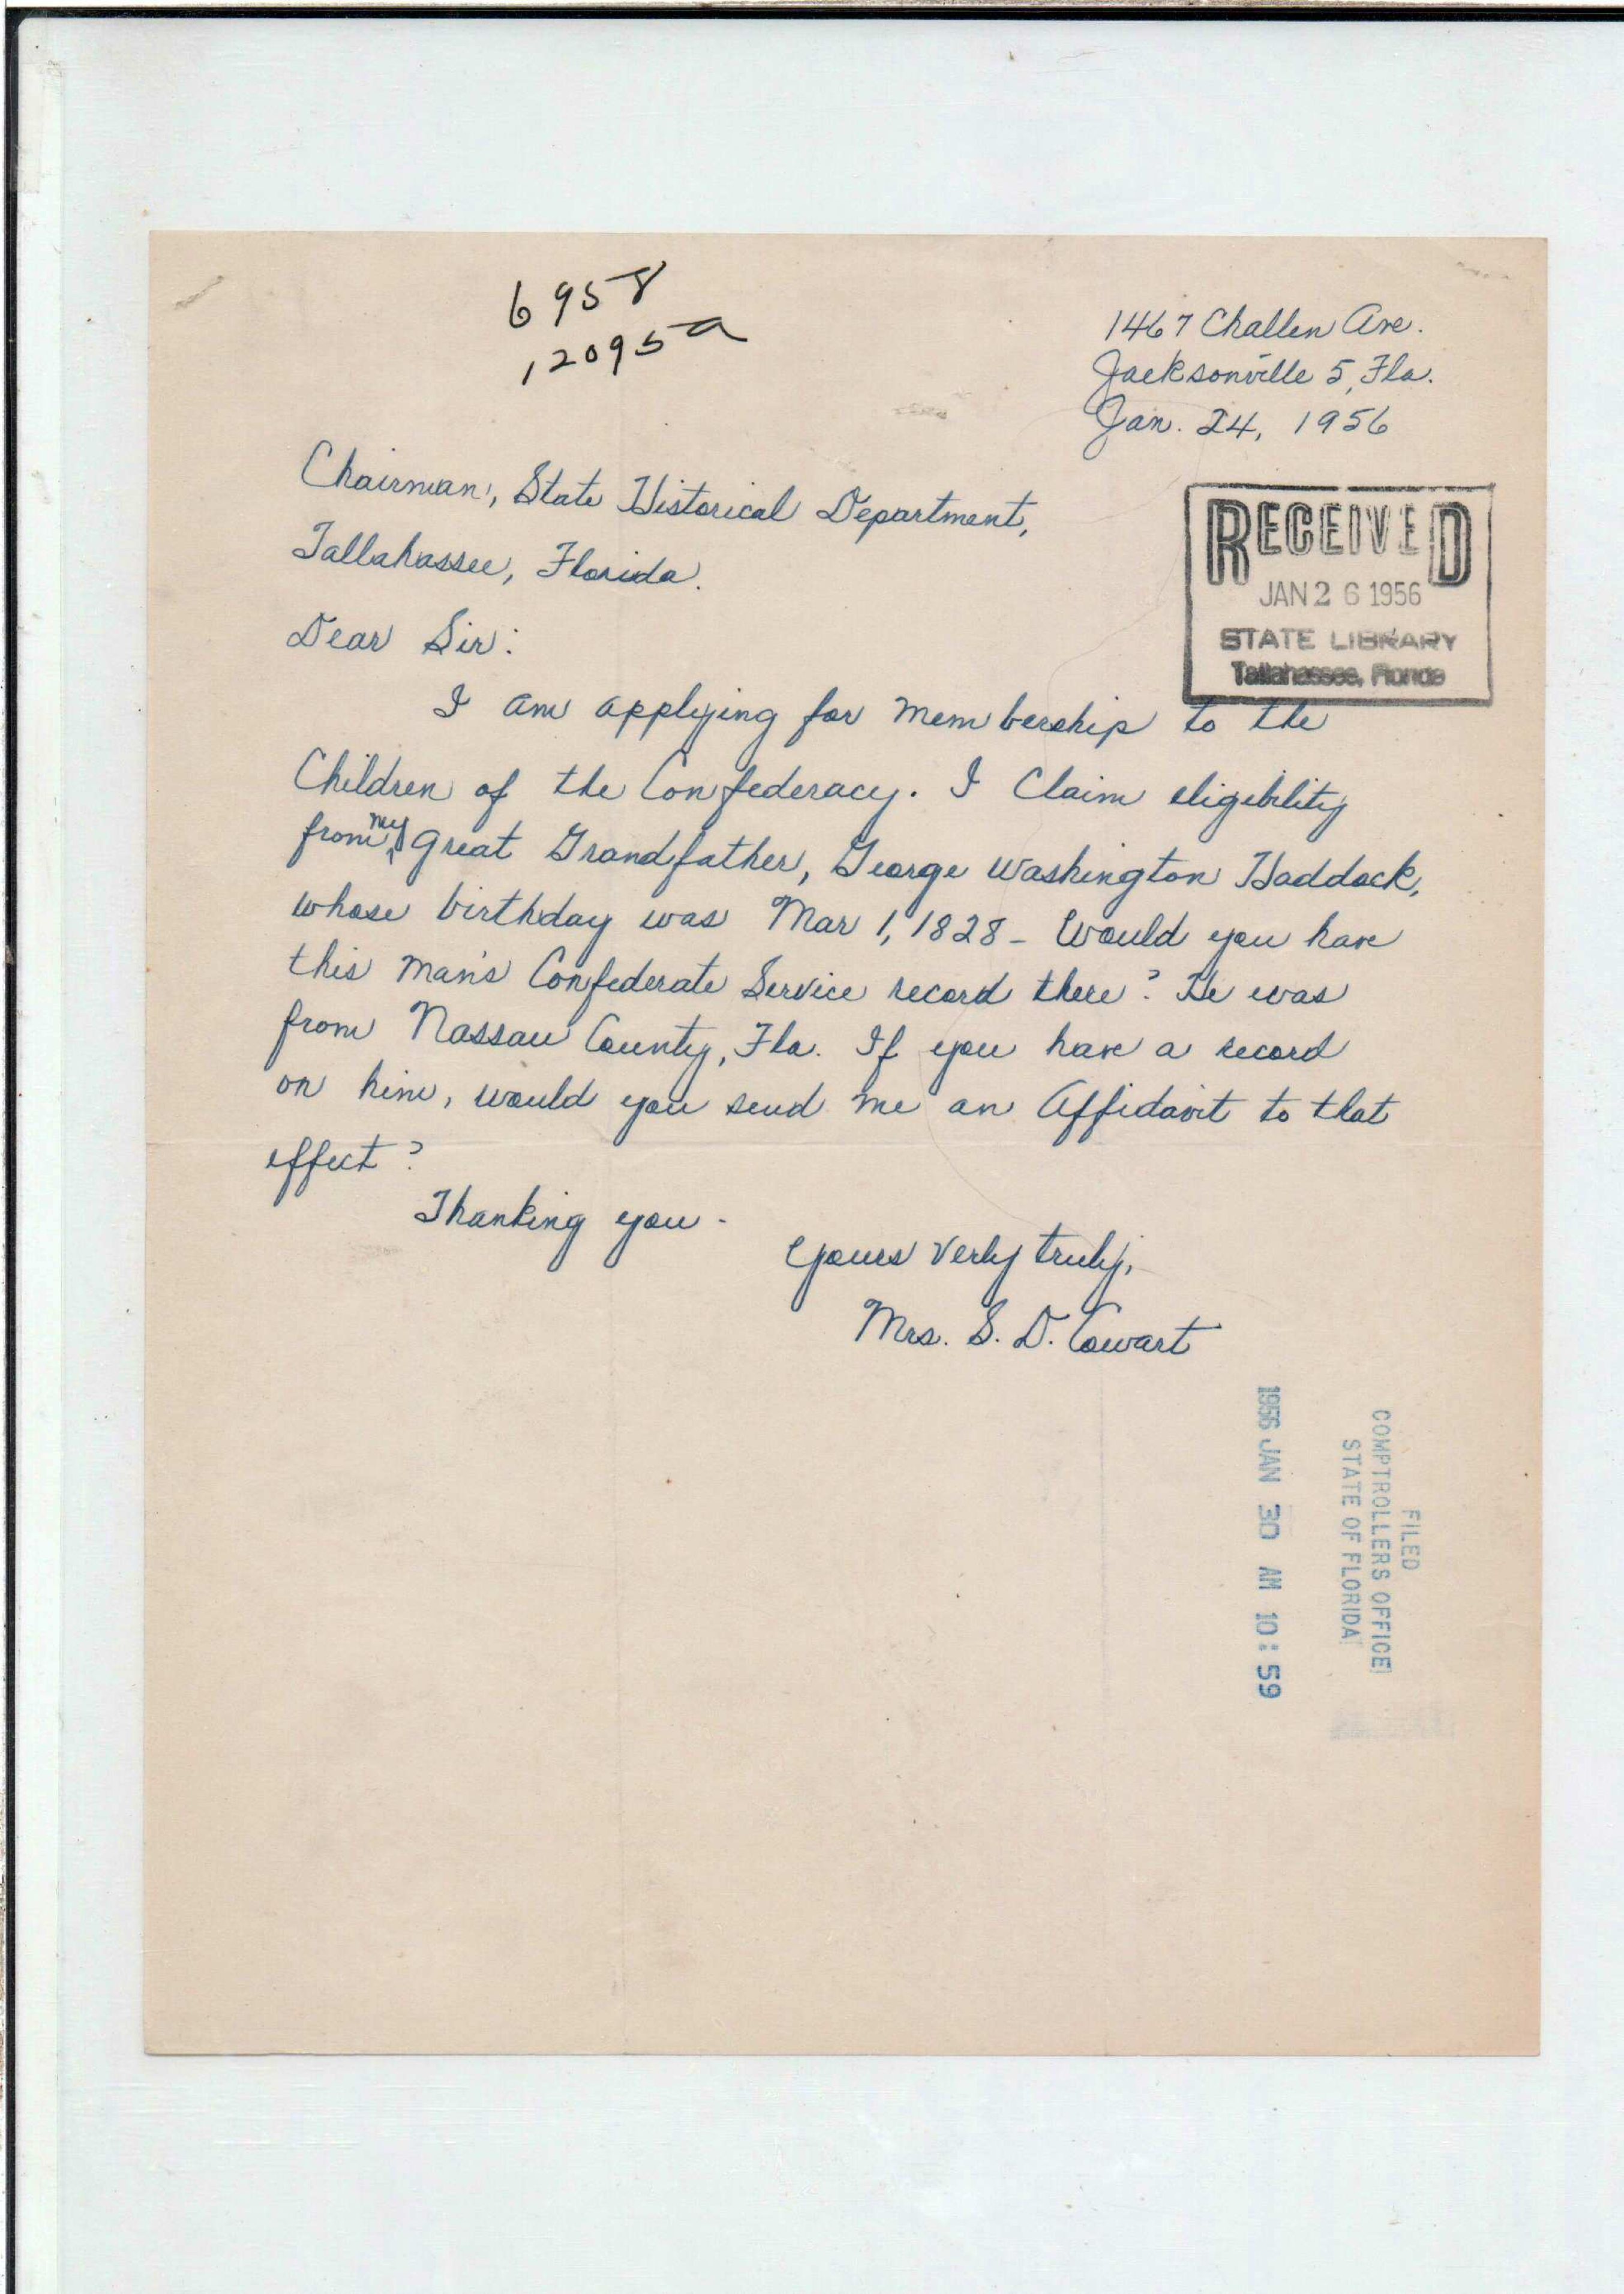 6958
12095a
1467 Challen Ave.
Jacksonville 5, Fla.
Jan. 24, 1956
Chairman, State Historical Department,
Tallahassee, Florida.
RECEIVED
JAN 26 1956
STATE LIBRARY
Tallahassee, Florida
Dear Sir:
I am applying for membership to the
Children of the Confederacy. I Claim eligibility
from my great Grandfather, George Washington Haddock,
whose birthday was Mar 1, 1828 - Would you have
this man's Confederate Service record there? He was
from Nassau County, Fla. If you have a record
on him, would you send me an Affidavit to that
effect?
Thanking you -
Yours verly truly,
Mrs. S. D. Cowart
FILED
COMPTROLLERS OFFICE
STATE OF FLORIDA
1956 JAN 30 AM 10:59